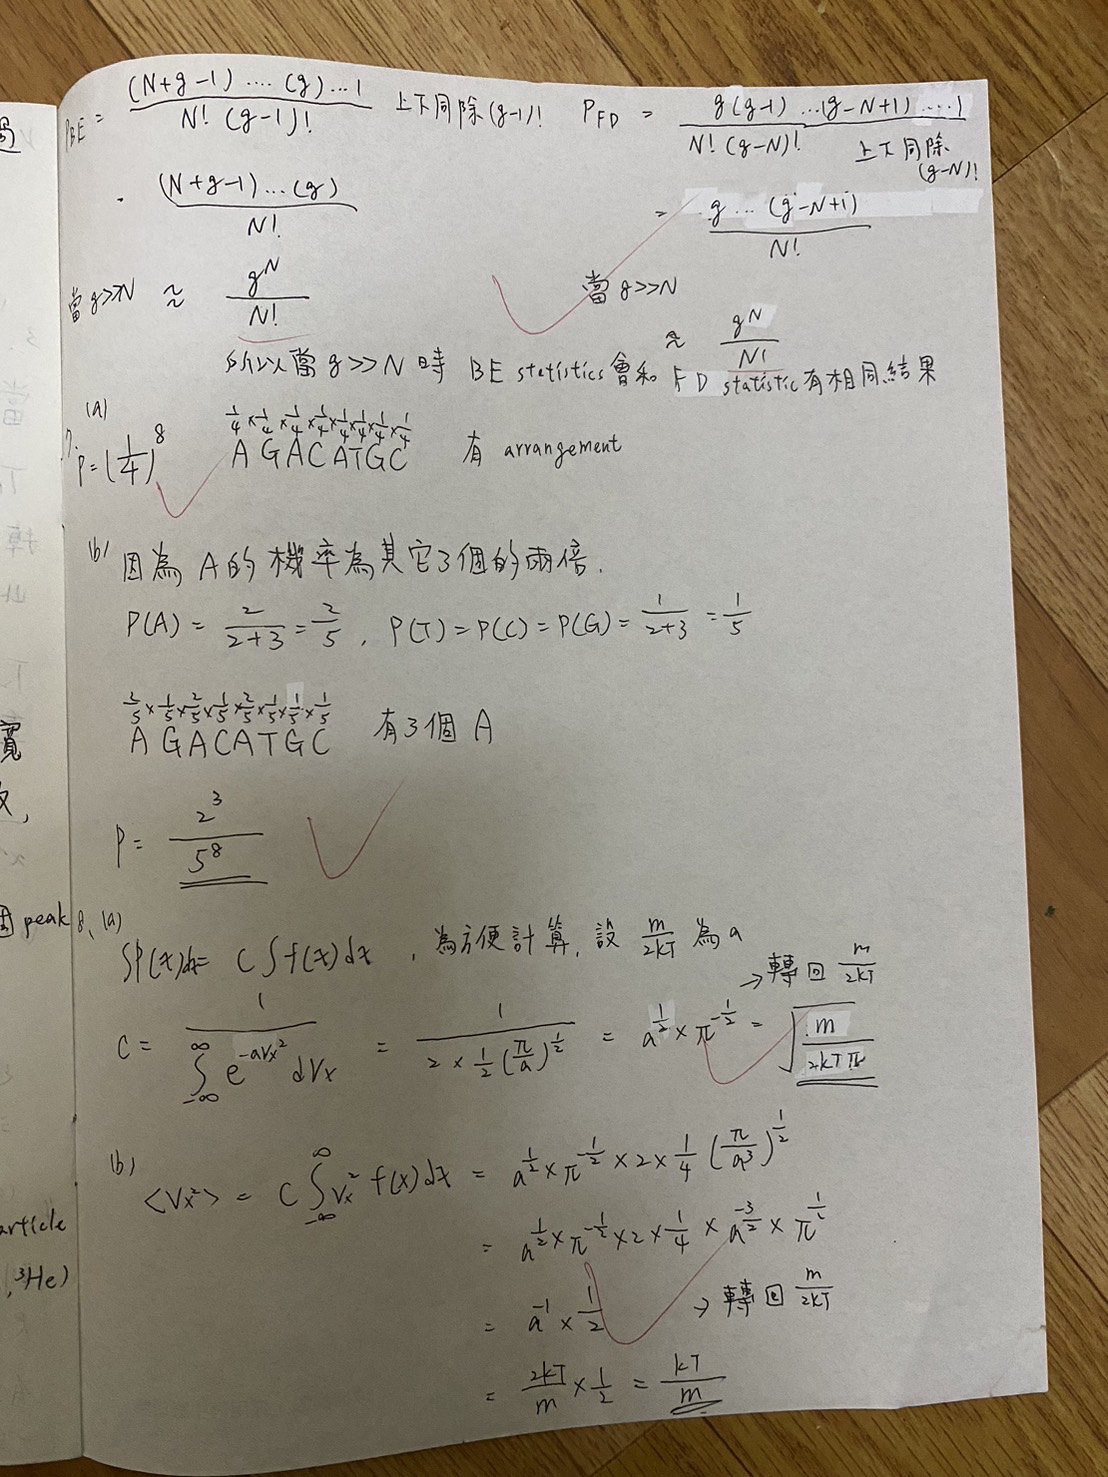 P_BE = (N+g-1)....(g)...1 / N! (g-1)! 上下同除(g-1)!
. (N+g-1)...(g) / N!
當g>>N ≈ g^N / N!
P_FD = g(g-1)...(g-N+1)....1 / N! (g-N)! 上下同除(g-N)!
= g...(g-N+1) / N!
當g>>N
≈ g^N / N!
所以當 g>>N 時 BE statistics會和 FD statistic有相同結果
7. (a) P=(1/4)^8 1/4×1/4×1/4×1/4×1/4×1/4×1/4×1/4 AGACATGC 有 arrangement
(b) 因為 A的機率為其它3個的兩倍.
P(A) = 2/(2+3) = 2/5 , P(T)=P(C)=P(G)= 1/(2+3) = 1/5
2/5×1/5×2/5×1/5×2/5×1/5×1/5×1/5
AGACATGC 有3個 A
P= 2^3 / 5^8
8、(a)
∫P(x)dx= C∫f(x)dx , 為方便計算, 設 m/2kT 為 a
C = 1 / ∫_-∞^∞ e^(-aVx^2) dVx = 1 / (2×1/2(π/a)^(1/2)) = a^(1/2)×π^(-1/2) = √(m/2kTπ) →轉回 m/2kT
(b)
<Vx^2> = C∫_-∞^∞ Vx^2 f(x)dx = a^(1/2)×π^(-1/2)×2×1/4 (π/a^3)^(1/2)
= a^(1/2)×π^(-1/2)×2×1/4×a^(-3/2)×π^(1/2)
= a^-1×1/2 →轉回 m/2kT
= 2kT/m×1/2 = kT/m
peak
article
, ³He)